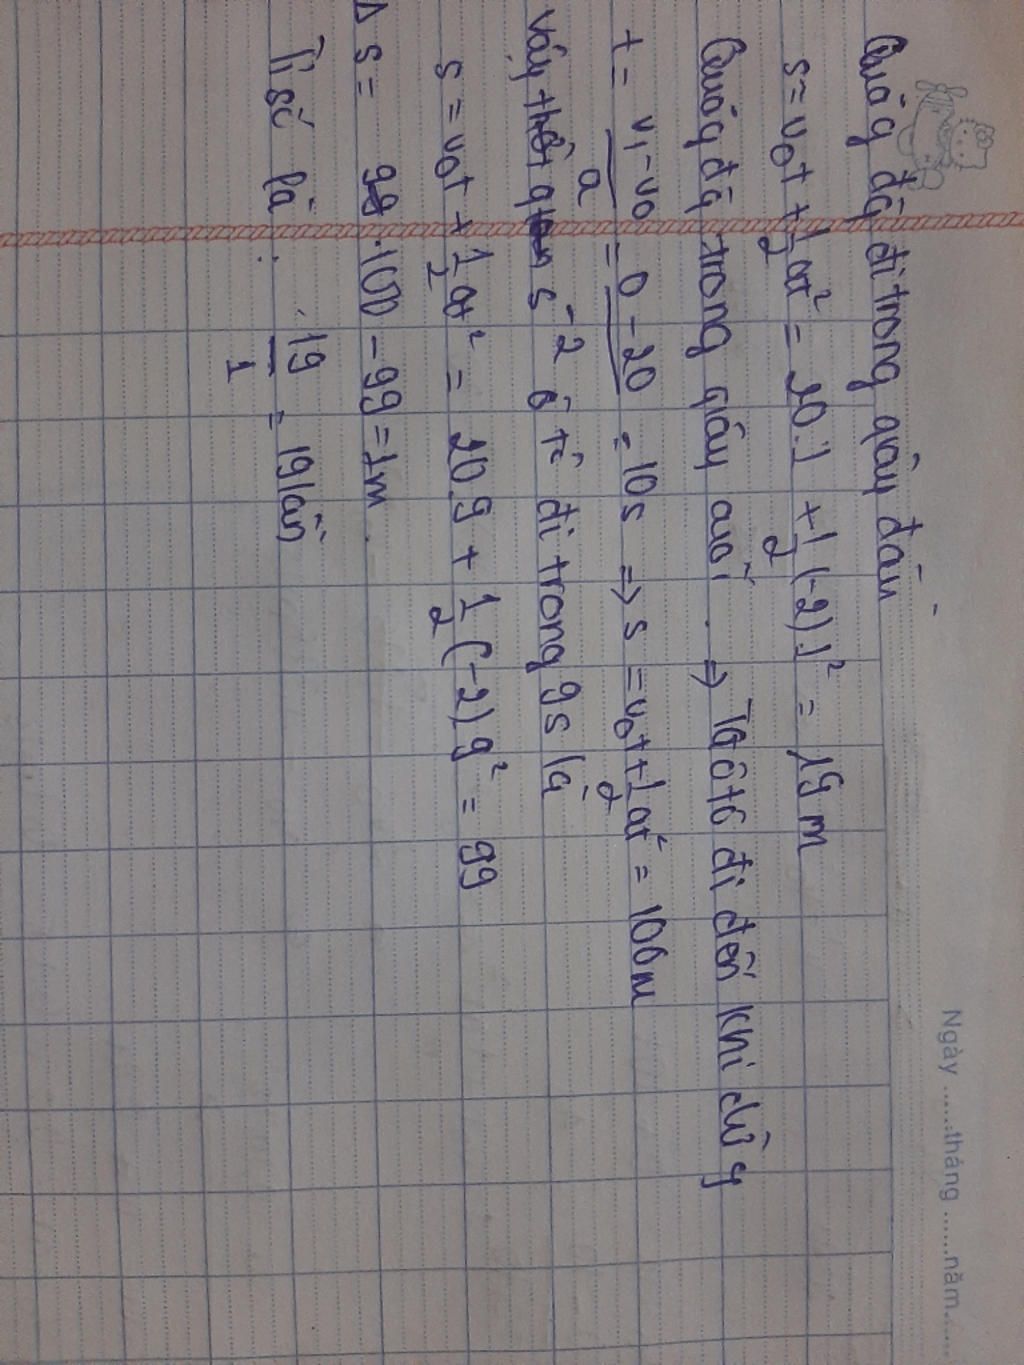 Ngày ......tháng ......năm......
Quãng đg đi trong giây đầu
s = v₀t + 1/2 at² = 20.1 + 1/2 (-2) 1² = 19 m
Quãng đg trong giây cuối. => Ta ôtô đi đến khi dừg
t = v₁ - v₀ / a = 0 - 20 / -2 = 10s => s = v₀t + 1/2 at² = 100m
Vậy thời gian s ô tô đi trong 9s là
s = v₀t + 1/2 at² = 20.9 + 1/2 (-2) 9² = 99
Δs = 100 - 99 = 1m.
Tỉ số là: 19/1 = 19 lần